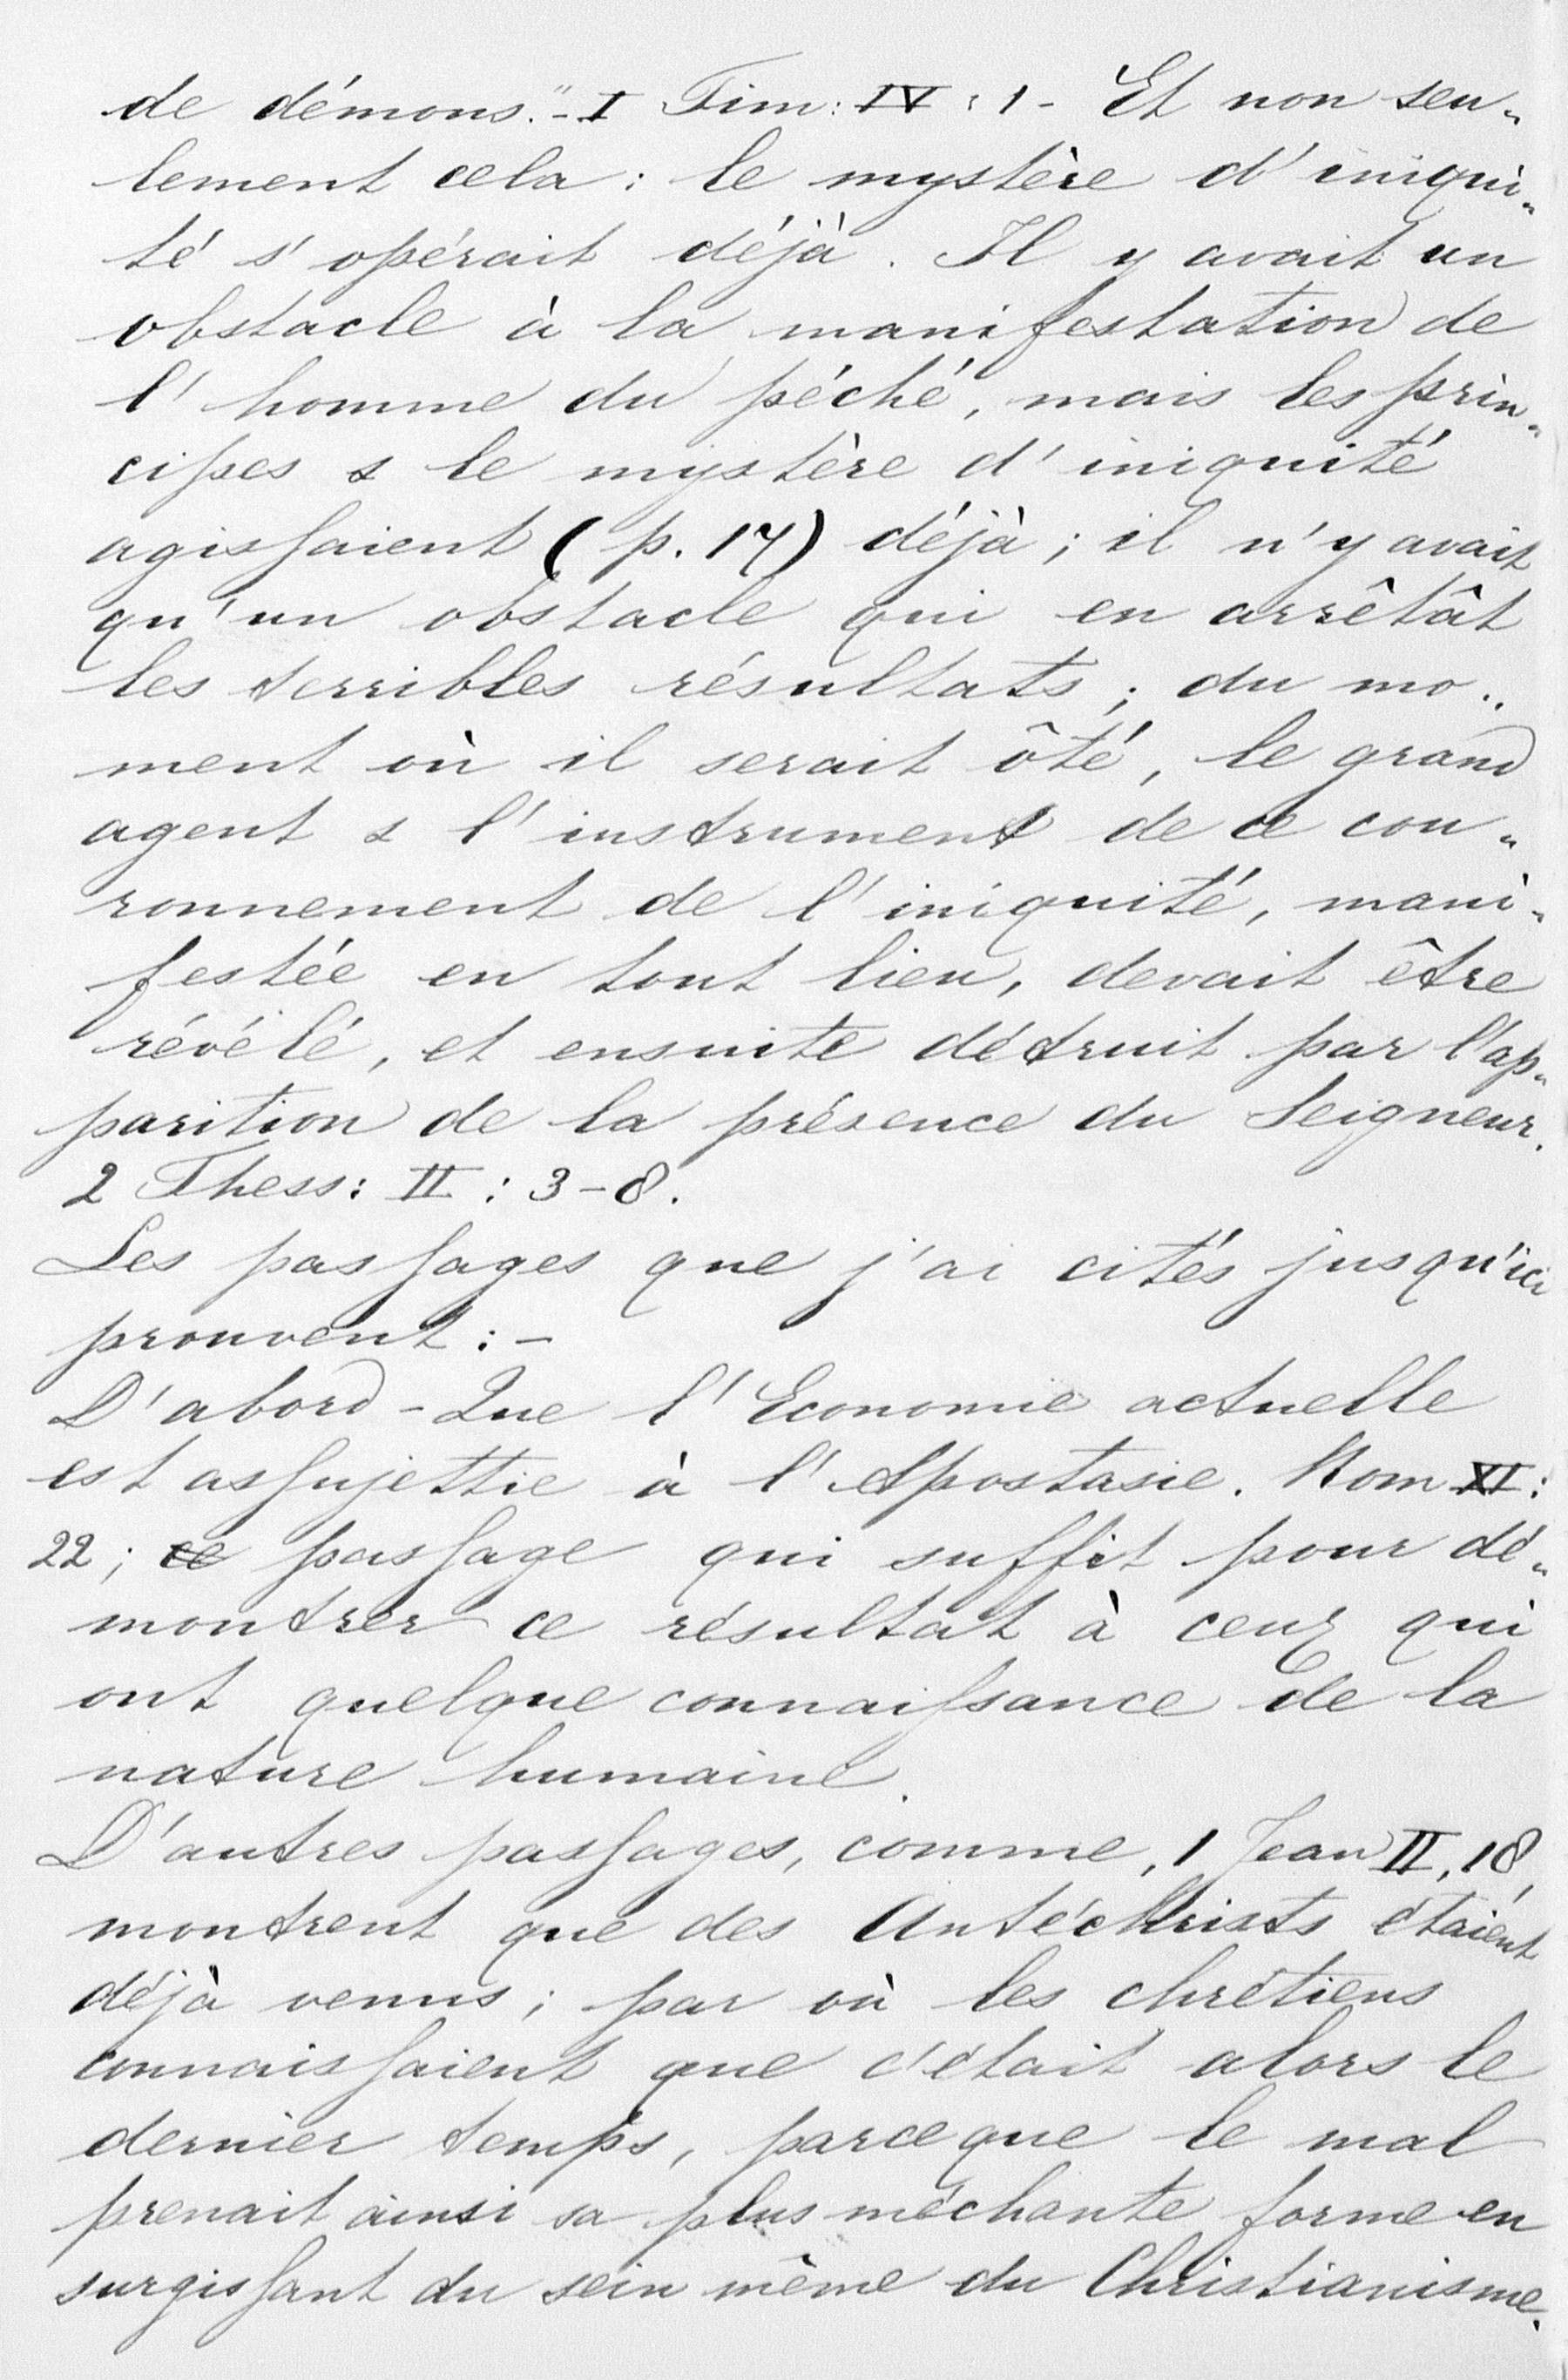 de démons." - I Tim: IV : 1 - Et non seu-
lement cela : le mystère d'iniqui-
té s'opérait déjà. Il y avait un
obstacle à la manifestation de
l'homme du péché, mais les prin-
cipes & le mystère d'iniquité
agissaient ( p. 17) déjà ; il n'y avait
qu'un obstacle qui en arrêtât
les terribles résultats ; du mo-
ment où il serait ôté, le grand
agent & l'instrument de ce cou-
ronnement de l'iniquité, mani-
festée en tout lieu, devait être
révélé, et ensuite détruit par l'ap-
parition de la présence du Seigneur.
2 Thess: II : 3 - 8.
Les passages que j'ai cités jusqu'ici
prouvent : -
D'abord - Que l'Economie actuelle
est assujettie à l'Apostasie. Rom XI :
22 ; ce passage qui suffit pour dé-
montrer ce résultat à ceux qui
ont quelque connaissance de la
nature humaine.
D'autres passages, comme, 1 Jean II, 18,
montrent que des Antéchrists étaient
déjà venus ; par où les chrétiens
connaissaient que c'était alors le
dernier temps, parceque le mal
prenait ainsi sa plus méchante forme en
surgissant du sein même du Christianisme.